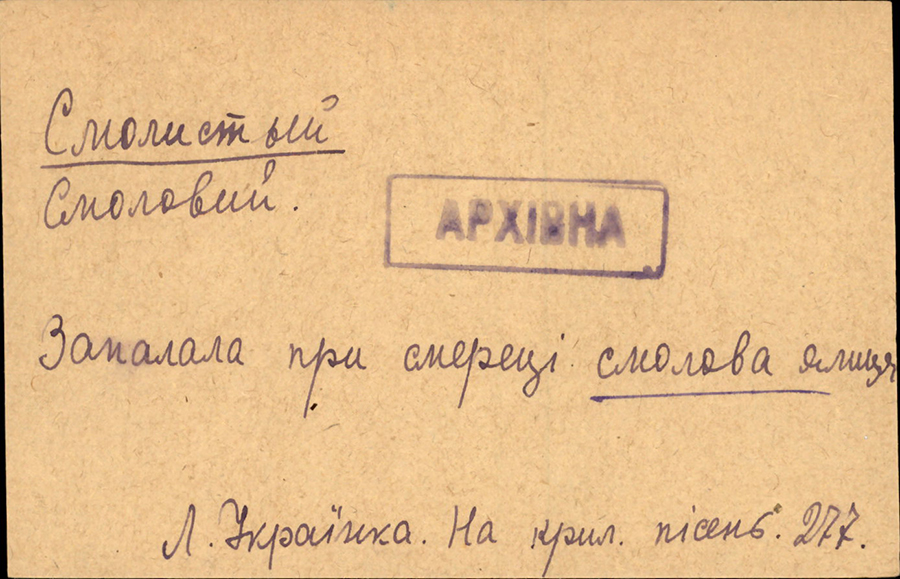 Смолистый
Смоловий.
АРХІВНА
Запалала при смереці смолова ялиця
Л. Українка. На крил. пісень. 277.